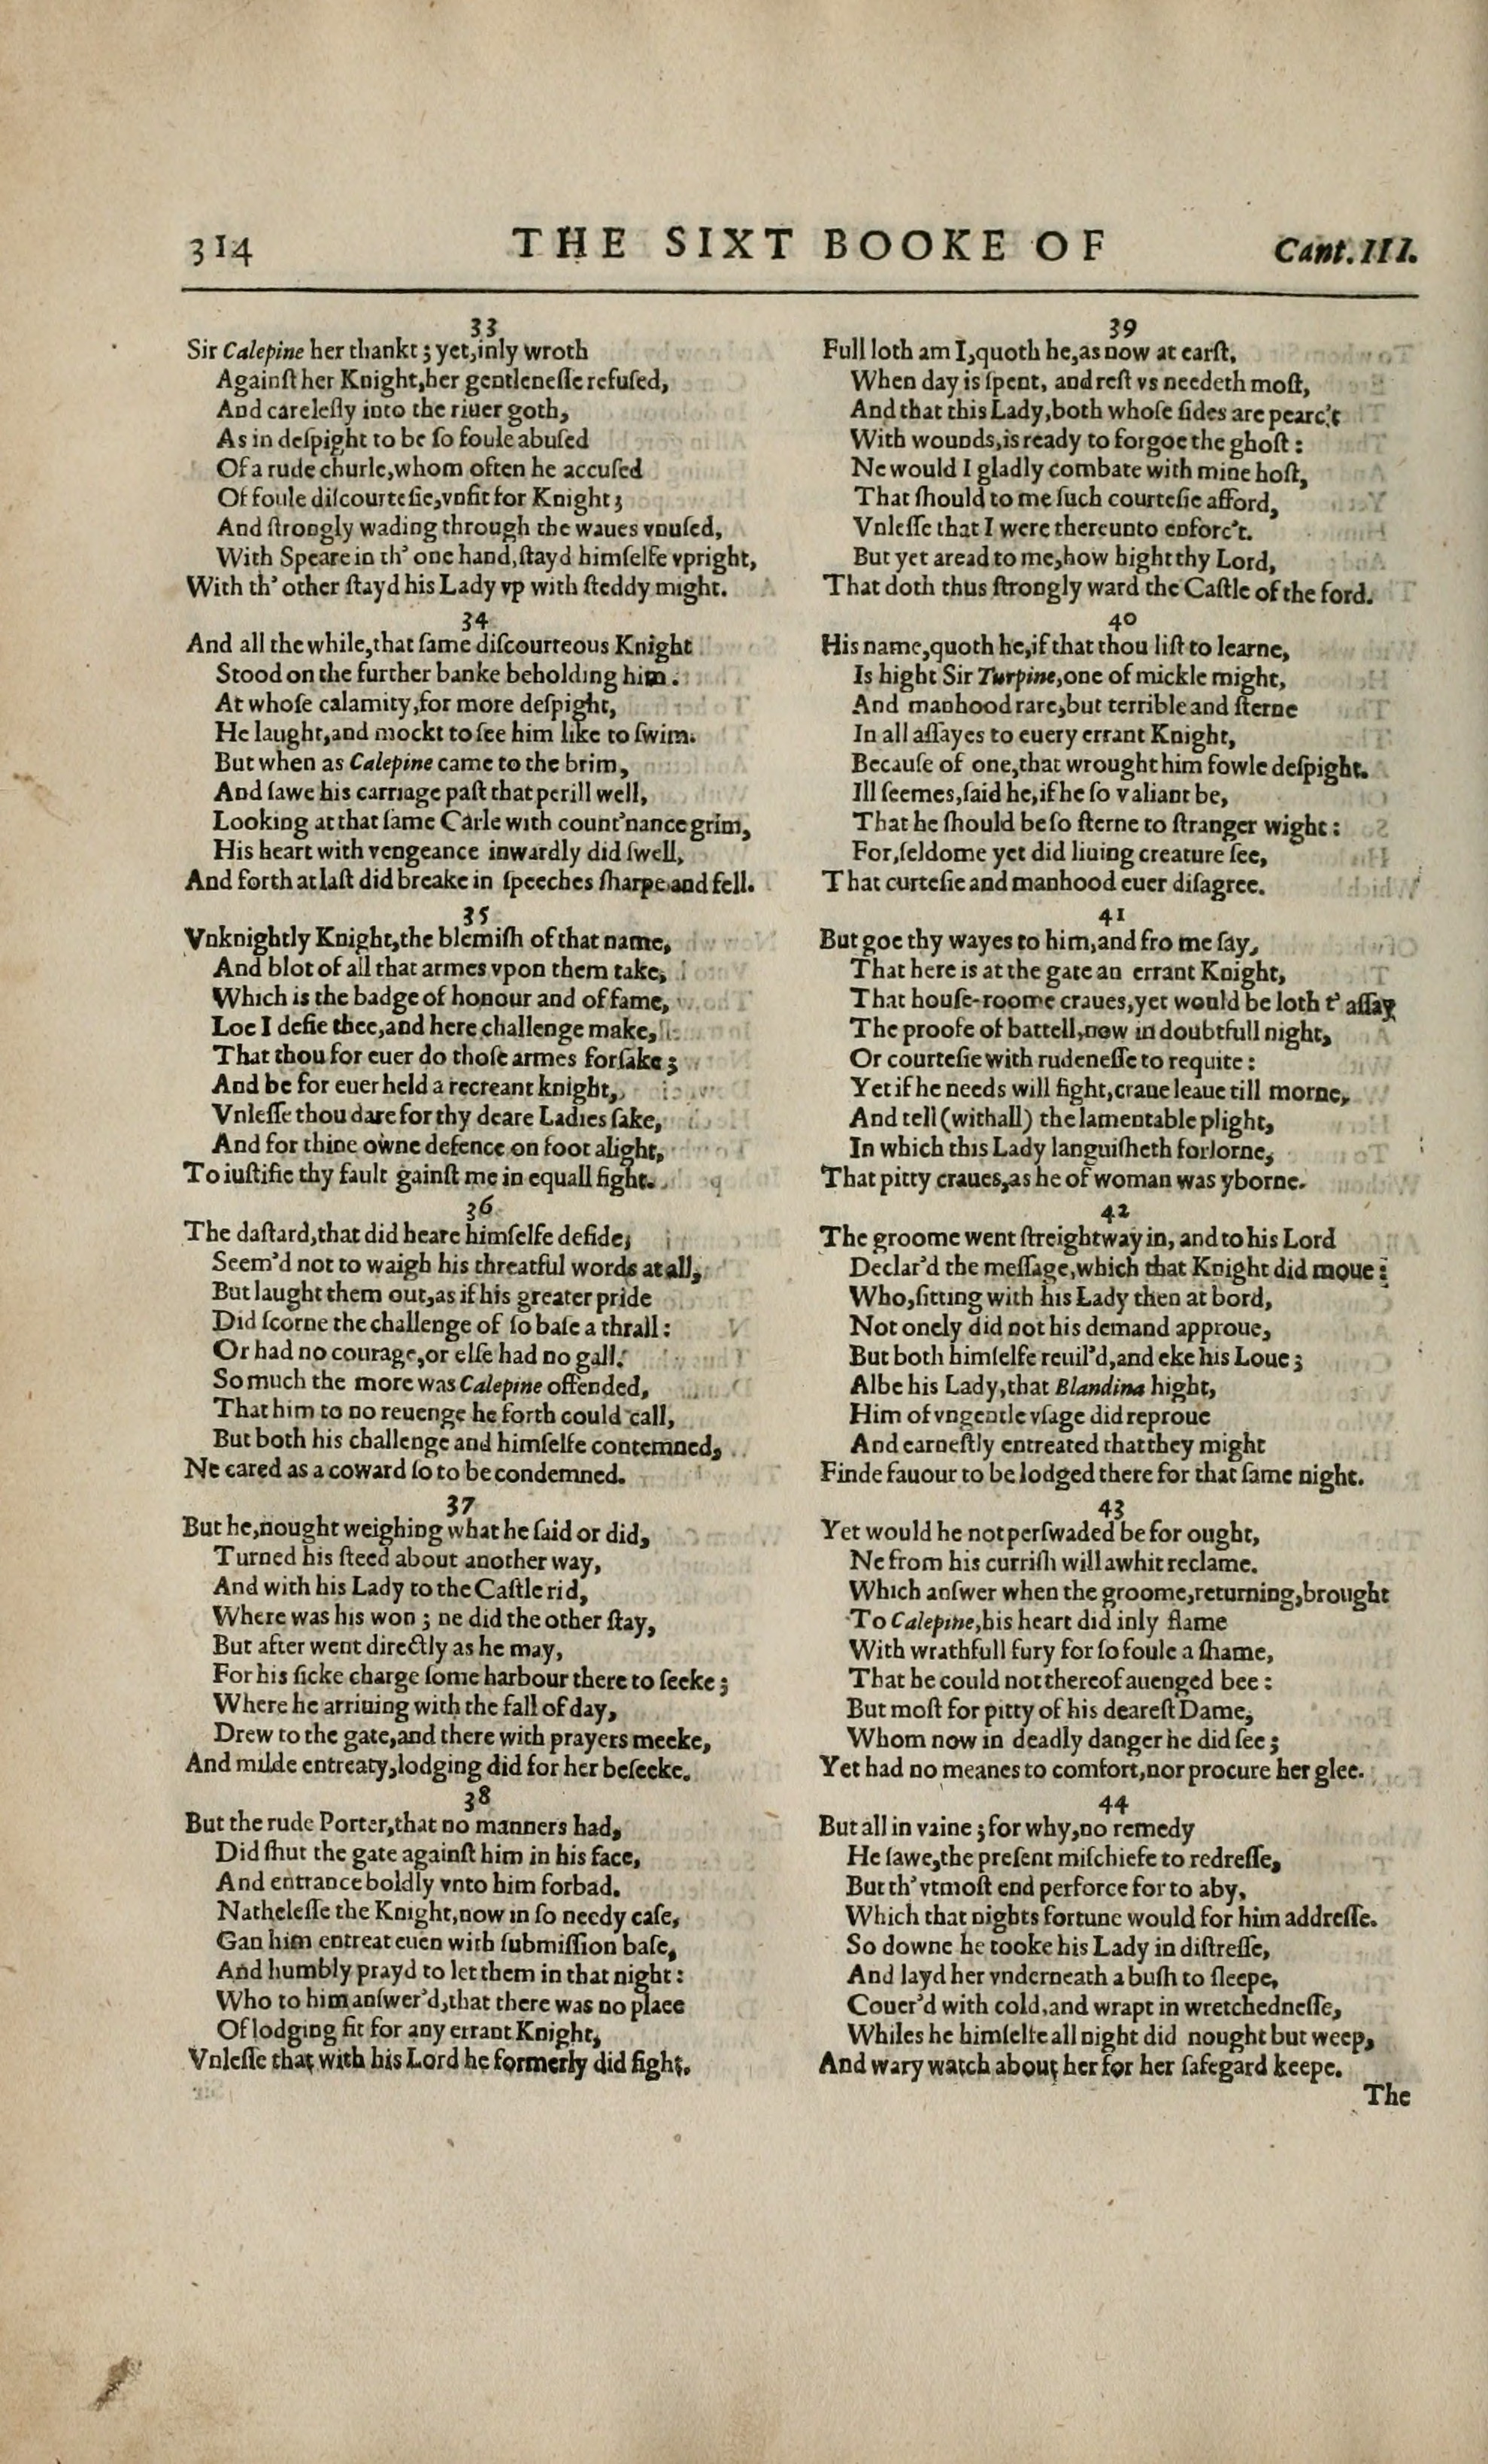 314 THE SIXT BOOKE OF Cant. III.
33
Sir Calepine her thankt; yet, inly wroth
Againſt her Knight, her gentleneſſe refuſed,
And careleſly into the riuer goth,
As in deſpight to be ſo foule abuſed
Of a rude churle, whom often he accuſed
Of foule diſcourteſie, vnfit for Knight;
And ſtrongly wading through the waues vnuſed,
With Speare in th' one hand, ſtayd himſelfe vpright,
With th' other ſtayd his Lady vp with ſteddy might.
34
And all the while, that ſame diſcourteous Knight
Stood on the further banke beholding him.
At whoſe calamity, for more deſpight,
He laught, and mockt to ſee him like to ſwim.
But when as Calepine came to the brim,
And ſawe his carriage paſt that perill well,
Looking at that ſame Carle with count'nance grim,
His heart with vengeance inwardly did ſwell,
And forth at laſt did breake in ſpeeches ſharpe and fell.
35
Vnknightly Knight, the blemiſh of that name,
And blot of all that armes vpon them take,
Which is the badge of honour and of fame,
Loe I defie thee, and here challenge make,
That thou for euer do thoſe armes forſake;
And be for euer held a recreant knight,
Vnleſſe thou dare for thy deare Ladies ſake,
And for thine owne defence on foot alight,
To iuſtifie thy fault gainſt me in equall fight.
36
The daſtard, that did heare himſelfe defide,
Seem'd not to waigh his threatful words at all,
But laught them out, as if his greater pride
Did ſcorne the challenge of ſo baſe a thrall:
Or had no courage, or elſe had no gall.
So much the more was Calepine offended,
That him to no reuenge he forth could call,
But both his challenge and himſelfe contemned,
Ne cared as a coward ſo to be condemned.
37
But he, nought weighing what he ſaid or did,
Turned his ſteed about another way,
And with his Lady to the Caſtle rid,
Where was his won; ne did the other ſtay,
But after went directly as he may,
For his ſicke charge ſome harbour there to ſeeke;
Where he arriuing with the fall of day,
Drew to the gate, and there with prayers meeke,
And milde entreaty, lodging did for her beſeeke.
38
But the rude Porter, that no manners had,
Did ſhut the gate againſt him in his face,
And entrance boldly vnto him forbad.
Natheleſſe the Knight, now in ſo needy caſe,
Gan him entreat euen with ſubmiſſion baſe,
And humbly prayd to let them in that night:
Who to him anſwer'd, that there was no place
Of lodging fit for any errant Knight,
Vnleſſe that with his Lord he formerly did fight.
39
Full loth am I, quoth he, as now at earſt,
When day is ſpent, and reſt vs needeth moſt,
And that this Lady, both whoſe ſides are pearc't
With wounds, is ready to forgoe the ghoſt:
Ne would I gladly combate with mine hoſt,
That ſhould to me ſuch courteſie afford,
Vnleſſe that I were thereunto enforc't.
But yet aread to me, how hight thy Lord,
That doth thus ſtrongly ward the Caſtle of the ford.
40
His name, quoth he, if that thou liſt to learne,
Is hight Sir Turpine, one of mickle might,
And manhood rare, but terrible and ſterne
In all aſſayes to euery errant Knight,
Becauſe of one, that wrought him fowle deſpight.
Ill ſeemes, ſaid he, if he ſo valiant be,
That he ſhould be ſo ſterne to ſtranger wight:
For, ſeldome yet did liuing creature ſee,
That curteſie and manhood euer diſagree.
41
But goe thy wayes to him, and fro me ſay,
That here is at the gate an errant Knight,
That houſe-roome craues, yet would be loth t' aſſay
The proofe of battell, now in doubtfull night,
Or courteſie with rudeneſſe to requite:
Yet if he needs will fight, craue leaue till morne,
And tell (withall) the lamentable plight,
In which this Lady languiſheth forlorne,
That pitty craues, as he of woman was yborne.
42
The groome went ſtreightway in, and to his Lord
Declar'd the meſſage, which that Knight did moue;
Who, ſitting with his Lady then at bord,
Not onely did not his demand approue,
But both himſelfe reuil'd, and eke his Loue;
Albe his Lady, that Blandina hight,
Him of vngentle vſage did reproue
And earneſtly entreated that they might
Finde fauour to be lodged there for that ſame night.
43
Yet would he not perſwaded be for ought,
Ne from his curriſh will awhit reclame.
Which anſwer when the groome, returning, brought
To Calepine, his heart did inly flame
With wrathfull fury for ſo foule a ſhame,
That he could not thereof auenged bee:
But moſt for pitty of his deareſt Dame,
Whom now in deadly danger he did ſee;
Yet had no meanes to comfort, nor procure her glee.
44
But all in vaine; for why, no remedy
He ſawe, the preſent miſchiefe to redreſſe,
But th' vtmoſt end perforce for to aby,
Which that nights fortune would for him addreſſe.
So downe he tooke his Lady in diſtreſſe,
And layd her vnderneath a buſh to ſleepe,
Couer'd with cold, and wrapt in wretchedneſſe,
Whiles he himſelfe all night did nought but weep,
And wary watch about her for her ſafegard keepe.
The